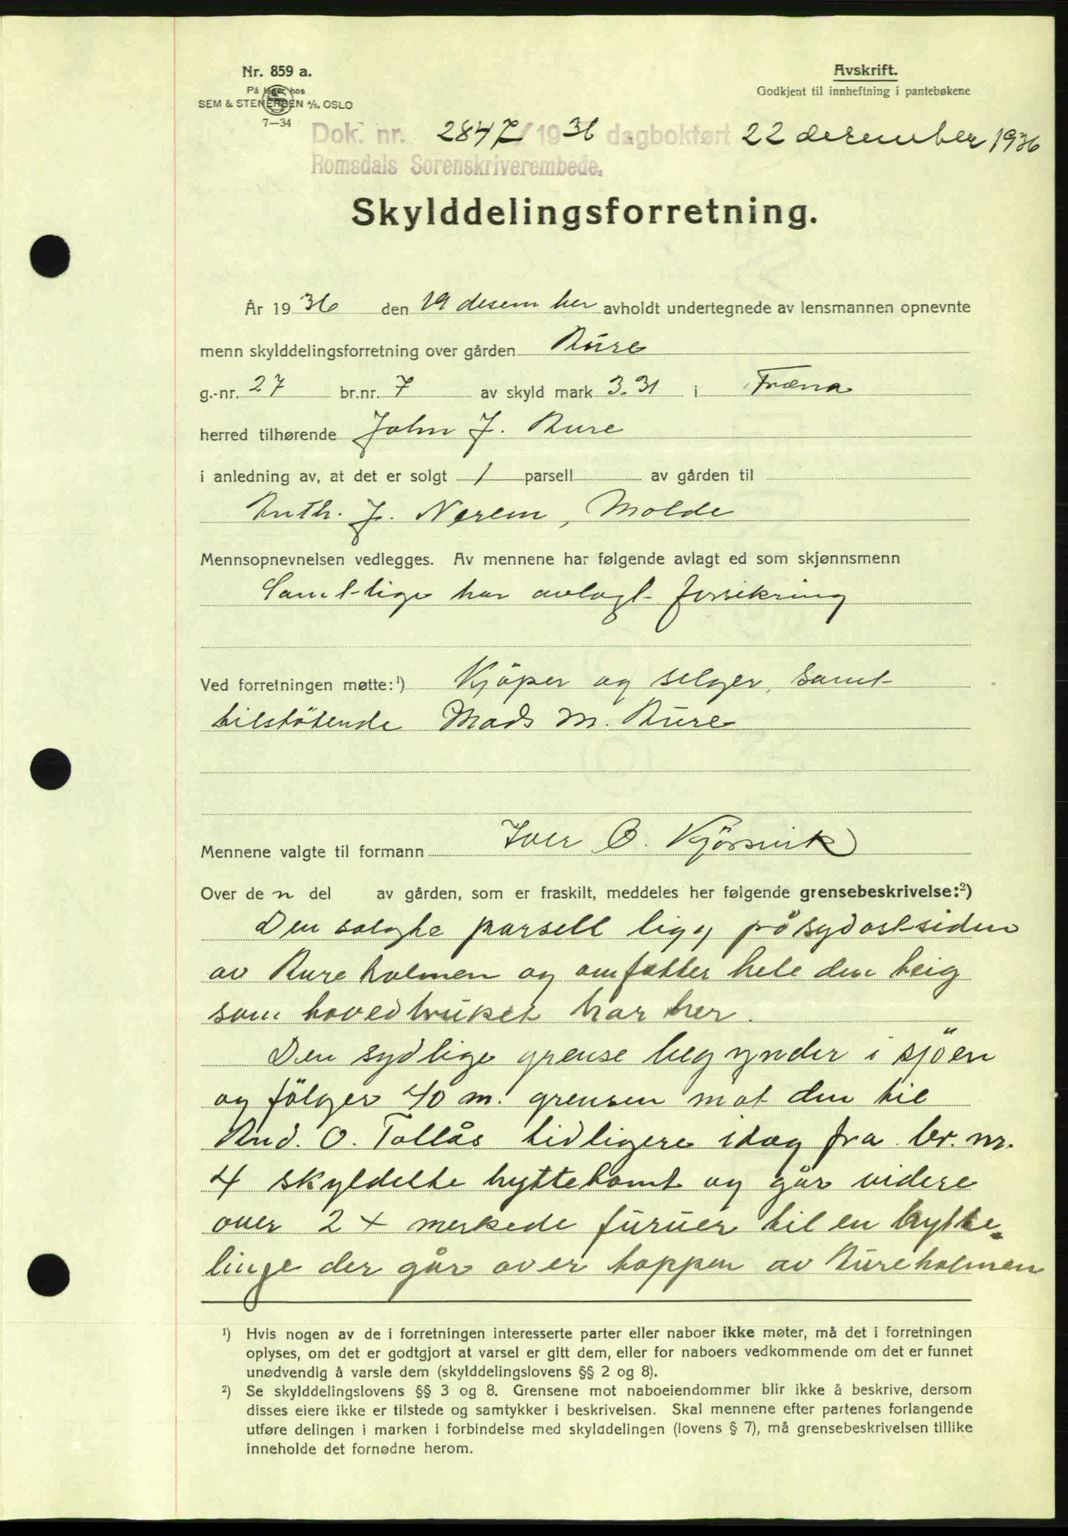 Nr. 859 a.
På lager hos
SEM & STENERSEN A/S, OSLO
7—34
Avskrift.
Godkjent til innheftning i pantebøkene
Dok. nr. 2847/1936 dagbokført 22 desember 1936
Romsdals Sorenskriverembede.
Skylddelingsforretning.
År 1936 den 19 desember avholdt undertegnede av lensmannen opnevnte
menn skylddelingsforretning over gården Rûre
g.-nr. 27 br.nr. 7 av skyld mark 3.31 i Fræna
herred tilhørende John J. Rure
i anledning av, at det er solgt 1 parsell av gården til
Anth. J. Nerem, Molde
Mennsopnevnelsen vedlegges. Av mennene har følgende avlagt ed som skjønnsmenn
Samtlige har avlagt forsikring
Ved forretningen møtte:¹) Kjöper og selger, samt
tilstötende Mads M. Rure
Mennene valgte til formann Iver O. Kjörsvik
Over de n del av gården, som er fraskilt, meddeles her følgende grensebeskrivelse:²)
Den solgte parsell ligg på sydostsiden
av Rureholmen og omfatter hele den teig
som hovedbruket har her.
Den sydlige grense begynder i sjöen
og fölger 40 m. grensen mot den til
And. O. Tollås tidligere idag fra br. nr.
4 skyldelte hyttetomt og går videre
over 2 + merkede furuer til en bytte-
linje der går over toppen av Rureholmen
¹) Hvis nogen av de i forretningen interesserte parter eller naboer ikke møter, må det i forretningen
oplyses, om det er godtgjort at varsel er gitt dem, eller for naboers vedkommende om det er funnet
unødvendig å varsle dem (skylddelingslovens §§ 2 og 8).
²) Se skylddelingslovens §§ 3 og 8. Grensene mot naboeiendommer blir ikke å beskrive, dersom
disses eiere ikke er tilstede og samtykker i beskrivelsen. Skal mennene efter partenes forlangende
utføre delingen i marken i forbindelse med skylddelingen (lovens § 7), må grensebeskrivelsen tillike
inneholde det fornødne herom.